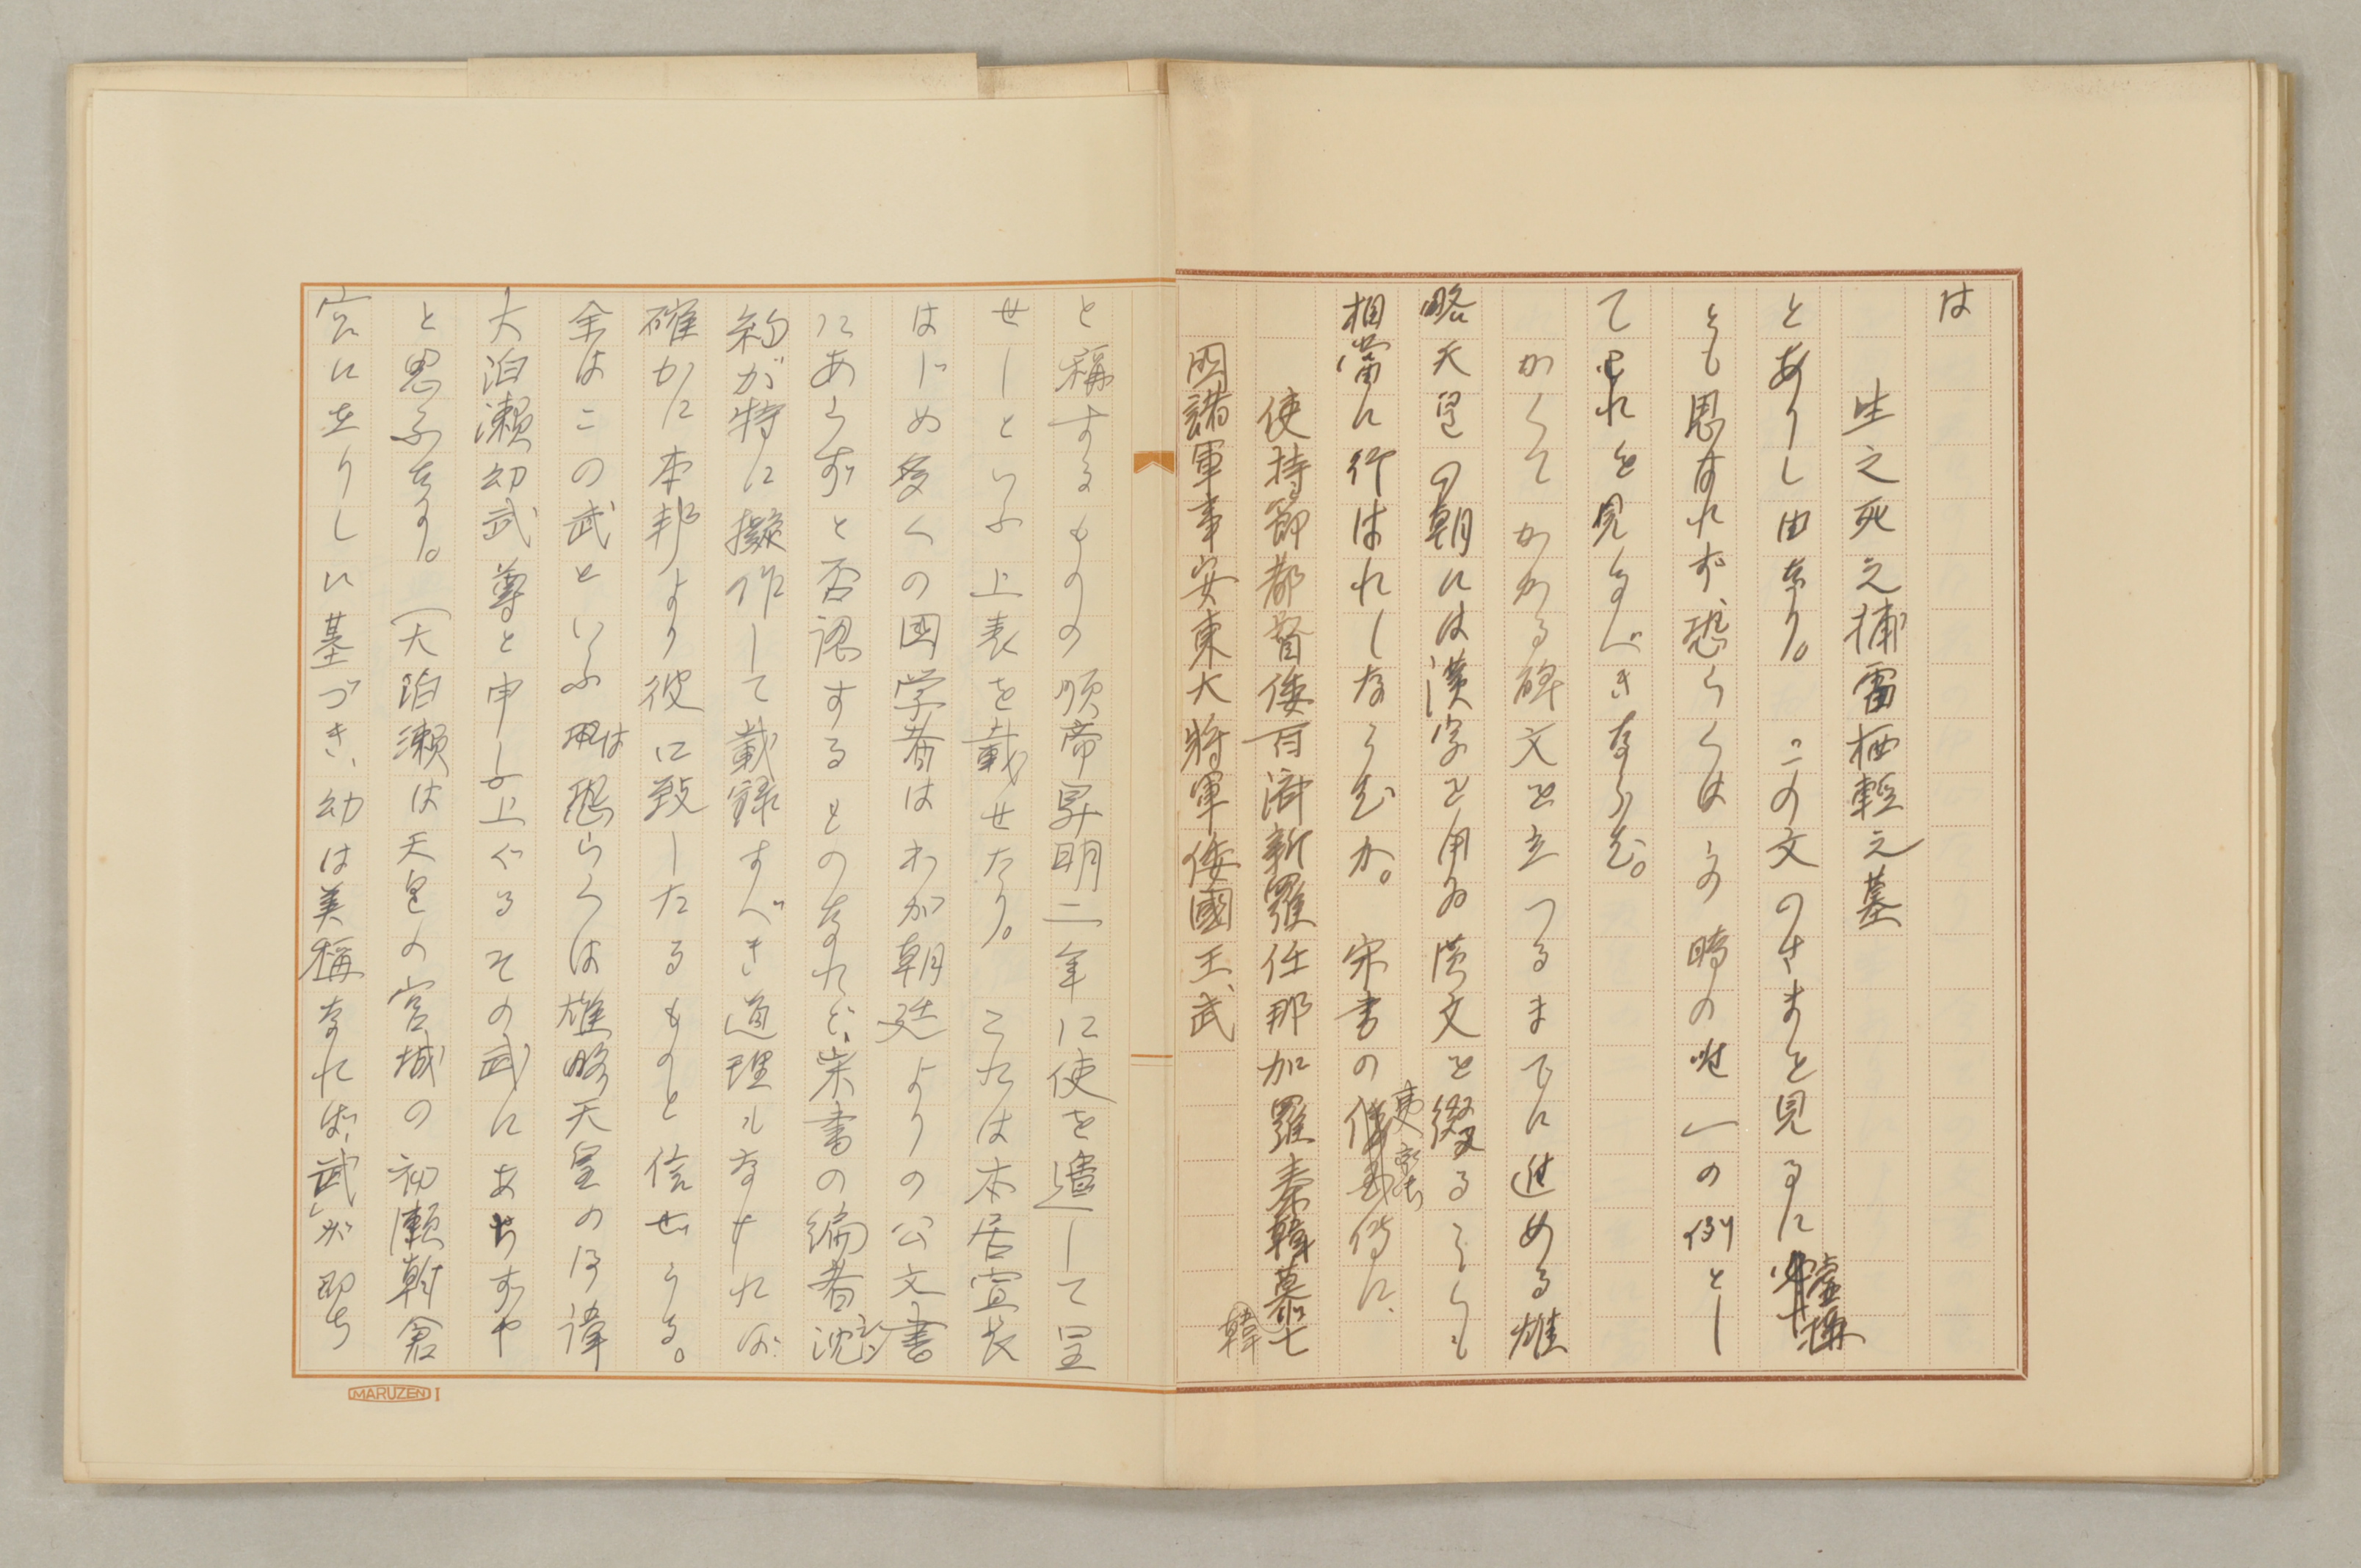 は
生之死之捕雷栖輕之墓
とありし由なり。この文のさまを見るに
とも思はれず、恐らくはその時の唯一の例とし
てこれを見るべきならむ。
かくてかかる碑文を立つるまでに進める雄
略天皇の朝には漢字を用ゐ漢文を綴ることも
相當に行はれしならむか。宋書の夷蛮傳に、
使持節都督倭百濟新羅任那加羅秦韓慕韓七
國諸軍事安東大將軍倭國王、武
と稱するものの順帝昇明二年に使を遣して呈
せしといふ上表を載せたり。これは本居宣長
はじめ多くの国学者はわが朝廷よりの公文書
にあらずと否認するものなれど、宋書の編者沈
約が特に擬作して載録すべき道理もなければ
確かに本邦より彼に致したるものと信ぜらる。
余はこの武といふは恐らくは雄略天皇の御諱
大泊瀬幼武尊と申し上ぐるその武にあらずや
と思ふなり。（大泊瀬は天皇の宮城の初瀬朝倉
宮に在りしに基づき、幼は美稱なれば、「武」が即ち
MARUZEN I